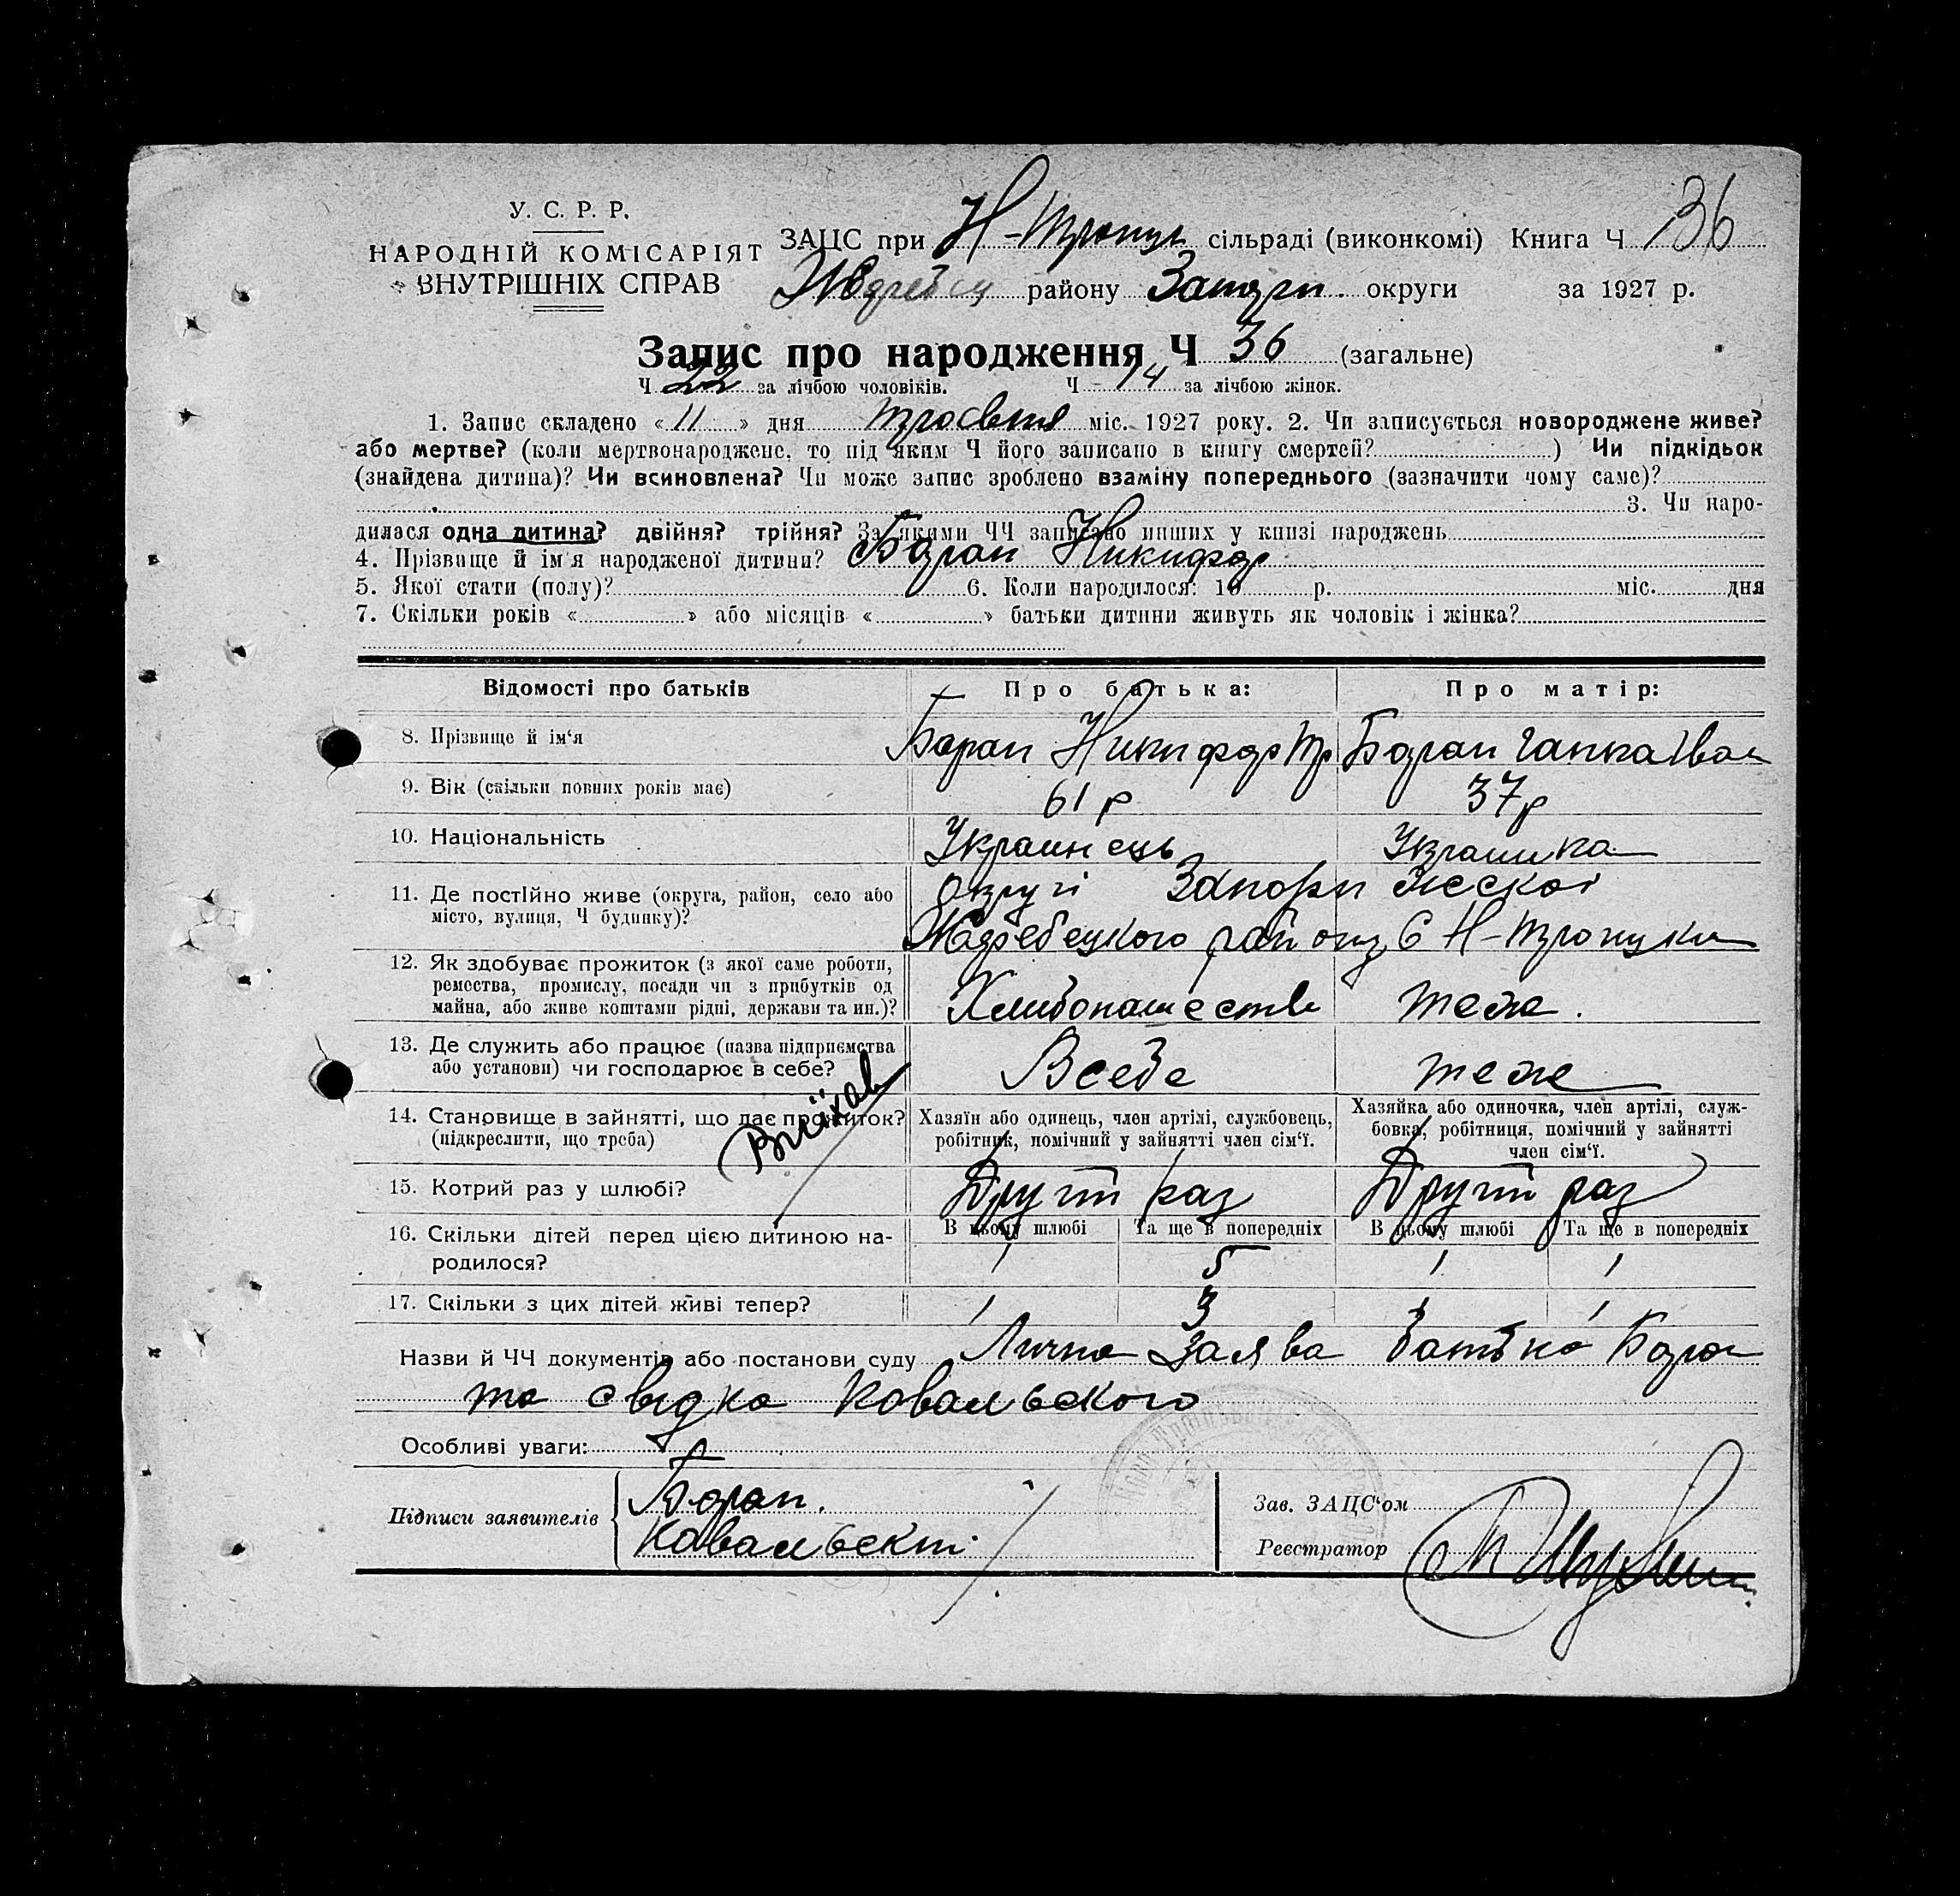 У. С. Р. Р.
НАРОДНІЙ КОМІСАРІЯТ
ВНУТРІШНІХ СПРАВ
ЗАЦС при Н-Троицк сільраді (виконкомі) Книга Ч 36
району Запори. округи за 1927 р.
Запис про народження Ч 36 (загальне)
Ч 22 за лічбою чоловіків. Ч 14 за лічбою жінок.
1. Запис складено « 11 » дня травня міс. 1927 року. 2. Чи записується новороджене живе?
або мертве? (коли мертвонароджене, то під яким Ч його записано в книгу смертей? ) Чи підкідьок
(знайдена дитина)? Чи всиновлена? Чи може запис зроблено взаміну попереднього (зазначити чому саме)?
3. Чи наро-
дилася одна дитина? двійня? трійня? За якими ЧЧ записано инших у книзі народжень
4. Прізвище й ім'я народженої дитини? Баран Никифор
5. Якої стати (полу)? 6. Коли народилося: 19 р. міс. дня
7. Скільки років « » або місяців « » батьки дитини живуть як чоловік і жінка?
Відомості про батьків Про батька: Про матір:
8. Прізвище й ім'я Баран Никифор Тр Баран Гапка Іван
9. Вік (скільки повних років має) 61 р 37 р
10. Національність Украинець Украинка
11. Де постійно живе (округа, район, село або
місто, вулиця, Ч будинку)?
округі Запорижской
Жадребецкого району С Н-Троицки
12. Як здобуває прожиток (з якої саме роботи,
ремества, промислу, посади чи з прибутків од
майна, або живе коштами рідні, держави та ин.)?
Хлибопашеств теж.
13. Де служить або працює (назва підприємства
або установи) чи господарює в себе?
Всебе теж
Виїхав
14. Становище в зайнятті, що дає прожиток?
(підкреслити, що треба)
Хазяїн або одинець, член артілі, службовець,
робітник, помічний у зайнятті член сім'ї.
Хазяйка або одиночка, член артілі, служ-
бовка, робітниця, помічний у зайнятті
член сім'ї.
15. Котрий раз у шлюбі? Другий раз Другий раз
16. Скільки дітей перед цією дитиною на-
родилося?
В цьому шлюбі Та ще в попередніх В цьому шлюбі Та ще в попередніх
1 5 1 1
17. Скільки з цих дітей живі тепер? 1 3 1 1
Назви й ЧЧ документів або постанови суду Лична заява батька Баран
та свідка Ковальського
Особливі уваги:
Підписи заявителів
Баран.
Ковальскі
Зав. ЗАЦС'ом
Реєстратор